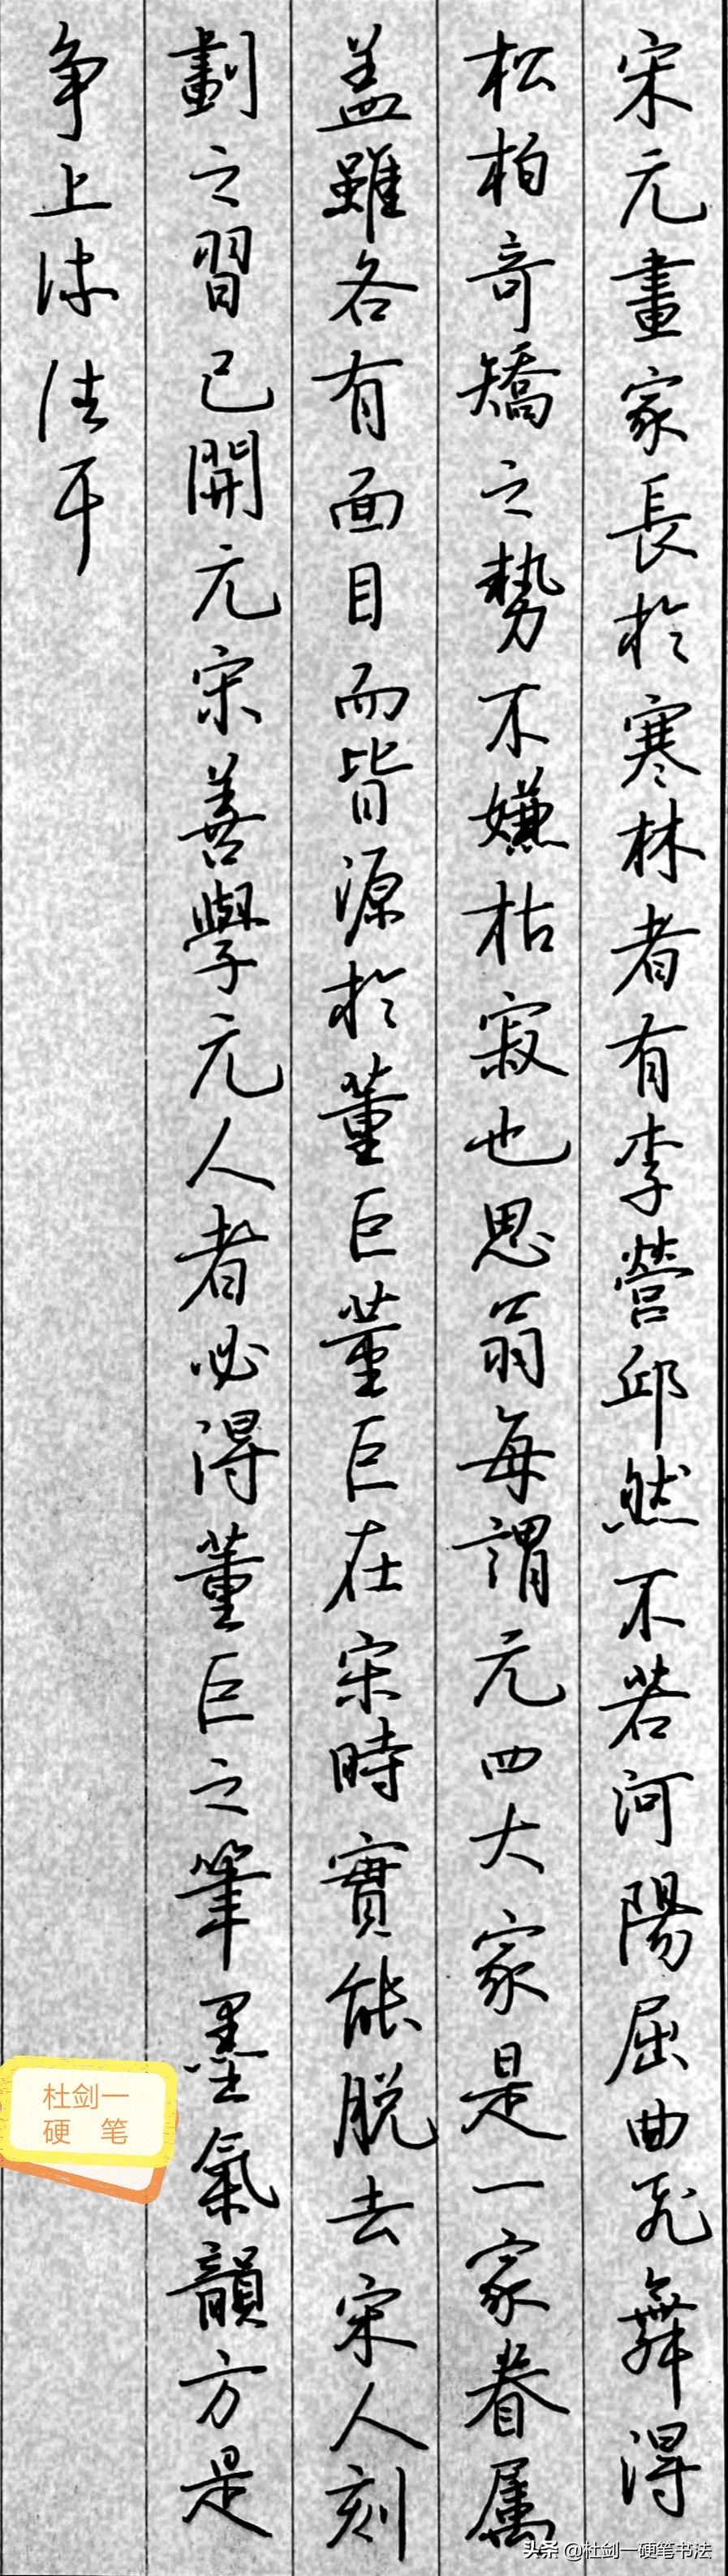 宋元畫家長於寒林者有李營邱然不若河陽屈曲飛舞得
松柏奇矯之勢不嫌枯寂也思翁每謂元四大家是一家眷屬
盖雖各有面目而皆源於董巨董巨在宋時實能脱去宋人刻
劃之習已開元宋善學元人者必得董巨之筆墨氣韻方是
争上
杜剑一
硬 笔
头条 @杜剑一硬笔书法